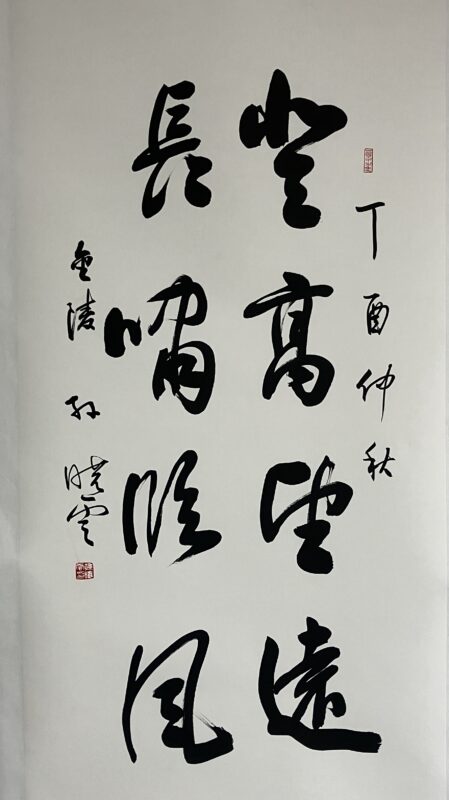 丁酉仲秋
登高望遠
長嘯臨風
金陵 孙晓云